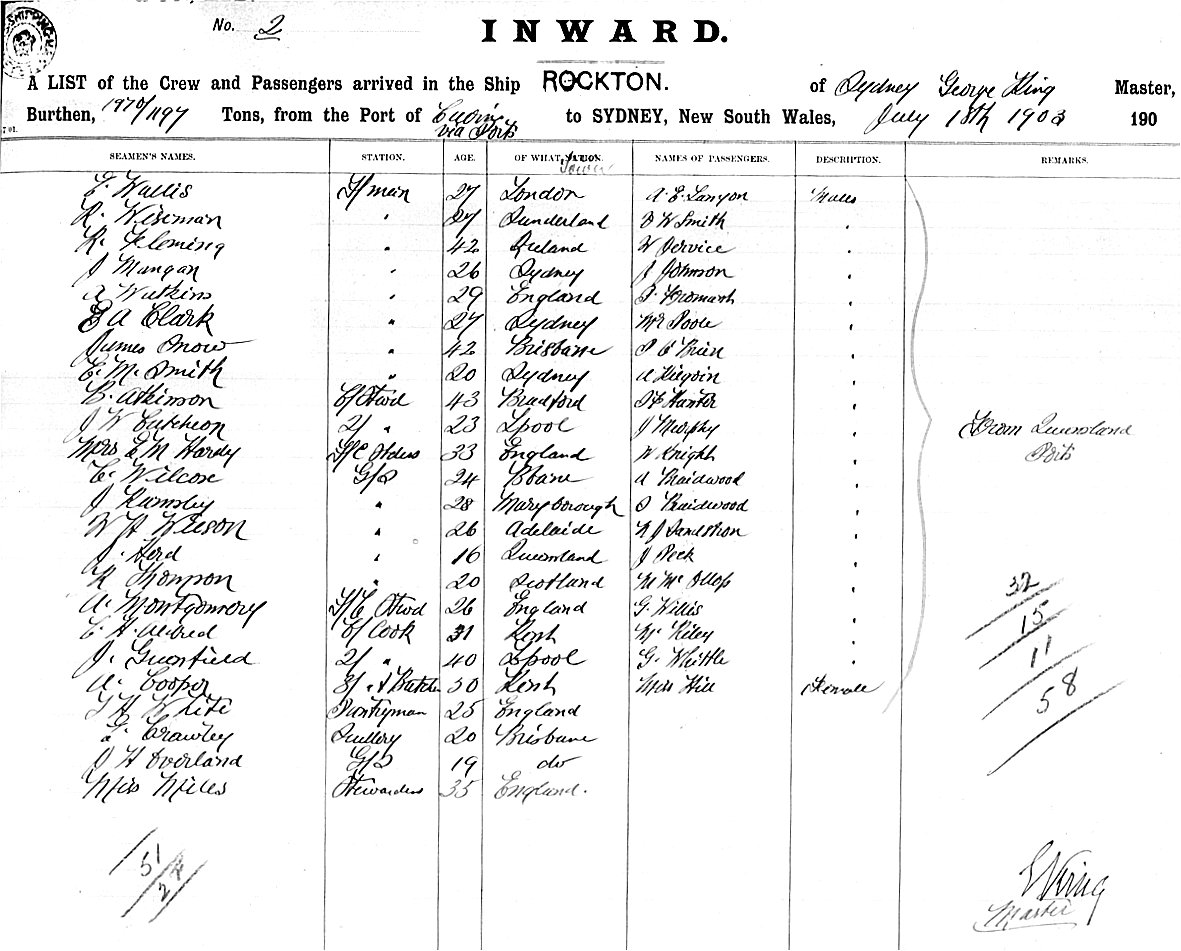 No. 2
INWARD.
A LIST of the Crew and Passengers arrived in the Ship ROCKTON. of Sydney George King Master,
Burthen, 1970/1197 Tons, from the Port of via Ports to SYDNEY, New South Wales, July 18th 1903 190
SEAMEN'S NAMES. STATION. AGE. OF WHAT NATION. NAMES OF PASSENGERS. DESCRIPTION. REMARKS.
Town
E. Wallis F/man 27 London A. E. Lanyon Males
R. Wiseman " 27 Sunderland B W Smith "
R. Fleming " 42 Ireland W Service "
J Mangan " 26 Sydney J Johnson "
A Watkins " 29 England "
E A Clark " 27 Sydney Mr Poole "
James Snow " 42 Brisbane P O'Brien "
E. M. Smith " 20 Sydney "
B. Atkinson C/Stwd 43 Bradford Hunter "
J W Cutcheon 2/ " 23 Lpool J Murphy "
Mrs E M Hardy F/C Stdess 33 England W Knight "
C. Wilcox G/S 24 Bbane A Braidwood "
J Ramsley " 28 Maryborough S Braidwood "
W H Wilson " 26 Adelaide R J Sandstron "
J. Herd " 16 Queensland J Peck "
R Thompson " 20 Scotland M "
A. Montgomery F/C Stwd 26 England G. Willis "
C H Aldred C/Cook 31 Kent M. Riley "
J. Greenfield 2/ " 40 Lpool G. Whittle "
A. Cooper 3/ " & Butcher 30 Kent Miss Hill Female
T H White Pantryman 25 England
L. Crawley Scullery 20 Brisbane
J H Overland G/S 19 do
Miss Miles Stewardess 35 England.
From Queensland
Ports
32
15
11
58
51
24
G King
Master